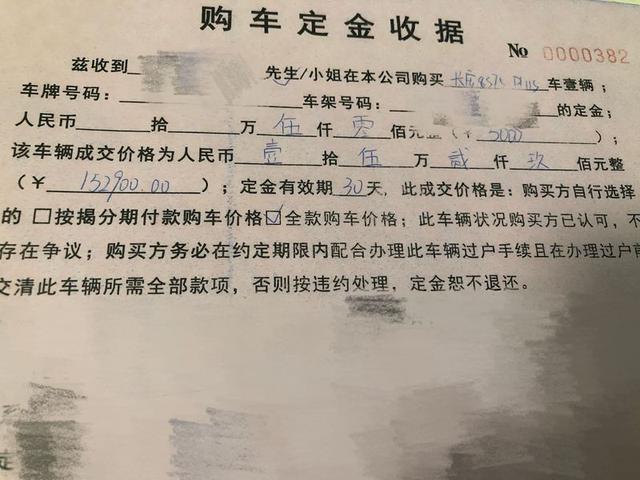 购车定金收据
No 0000382
兹收到 先生/小姐在本公司购买长安CS75 PLUS车壹辆；
车牌号码： 车架号码： 的定金；
人民币 拾 万 伍 仟 零 佰元整（￥ 5000 ）；
该车辆成交价格为人民币 壹 拾 伍 万 贰 仟 玖 佰元整
（￥ 152900.00 ）；定金有效期 30 天，此成交价格是：购买方自行选择
的 □按揭分期付款购车价格☑全款购车价格；此车辆状况购买方已认可，不
存在争议；购买方务必在约定期限内配合办理此车辆过户手续且在办理过户前
交清此车辆所需全部款项，否则按违约处理，定金恕不退还。